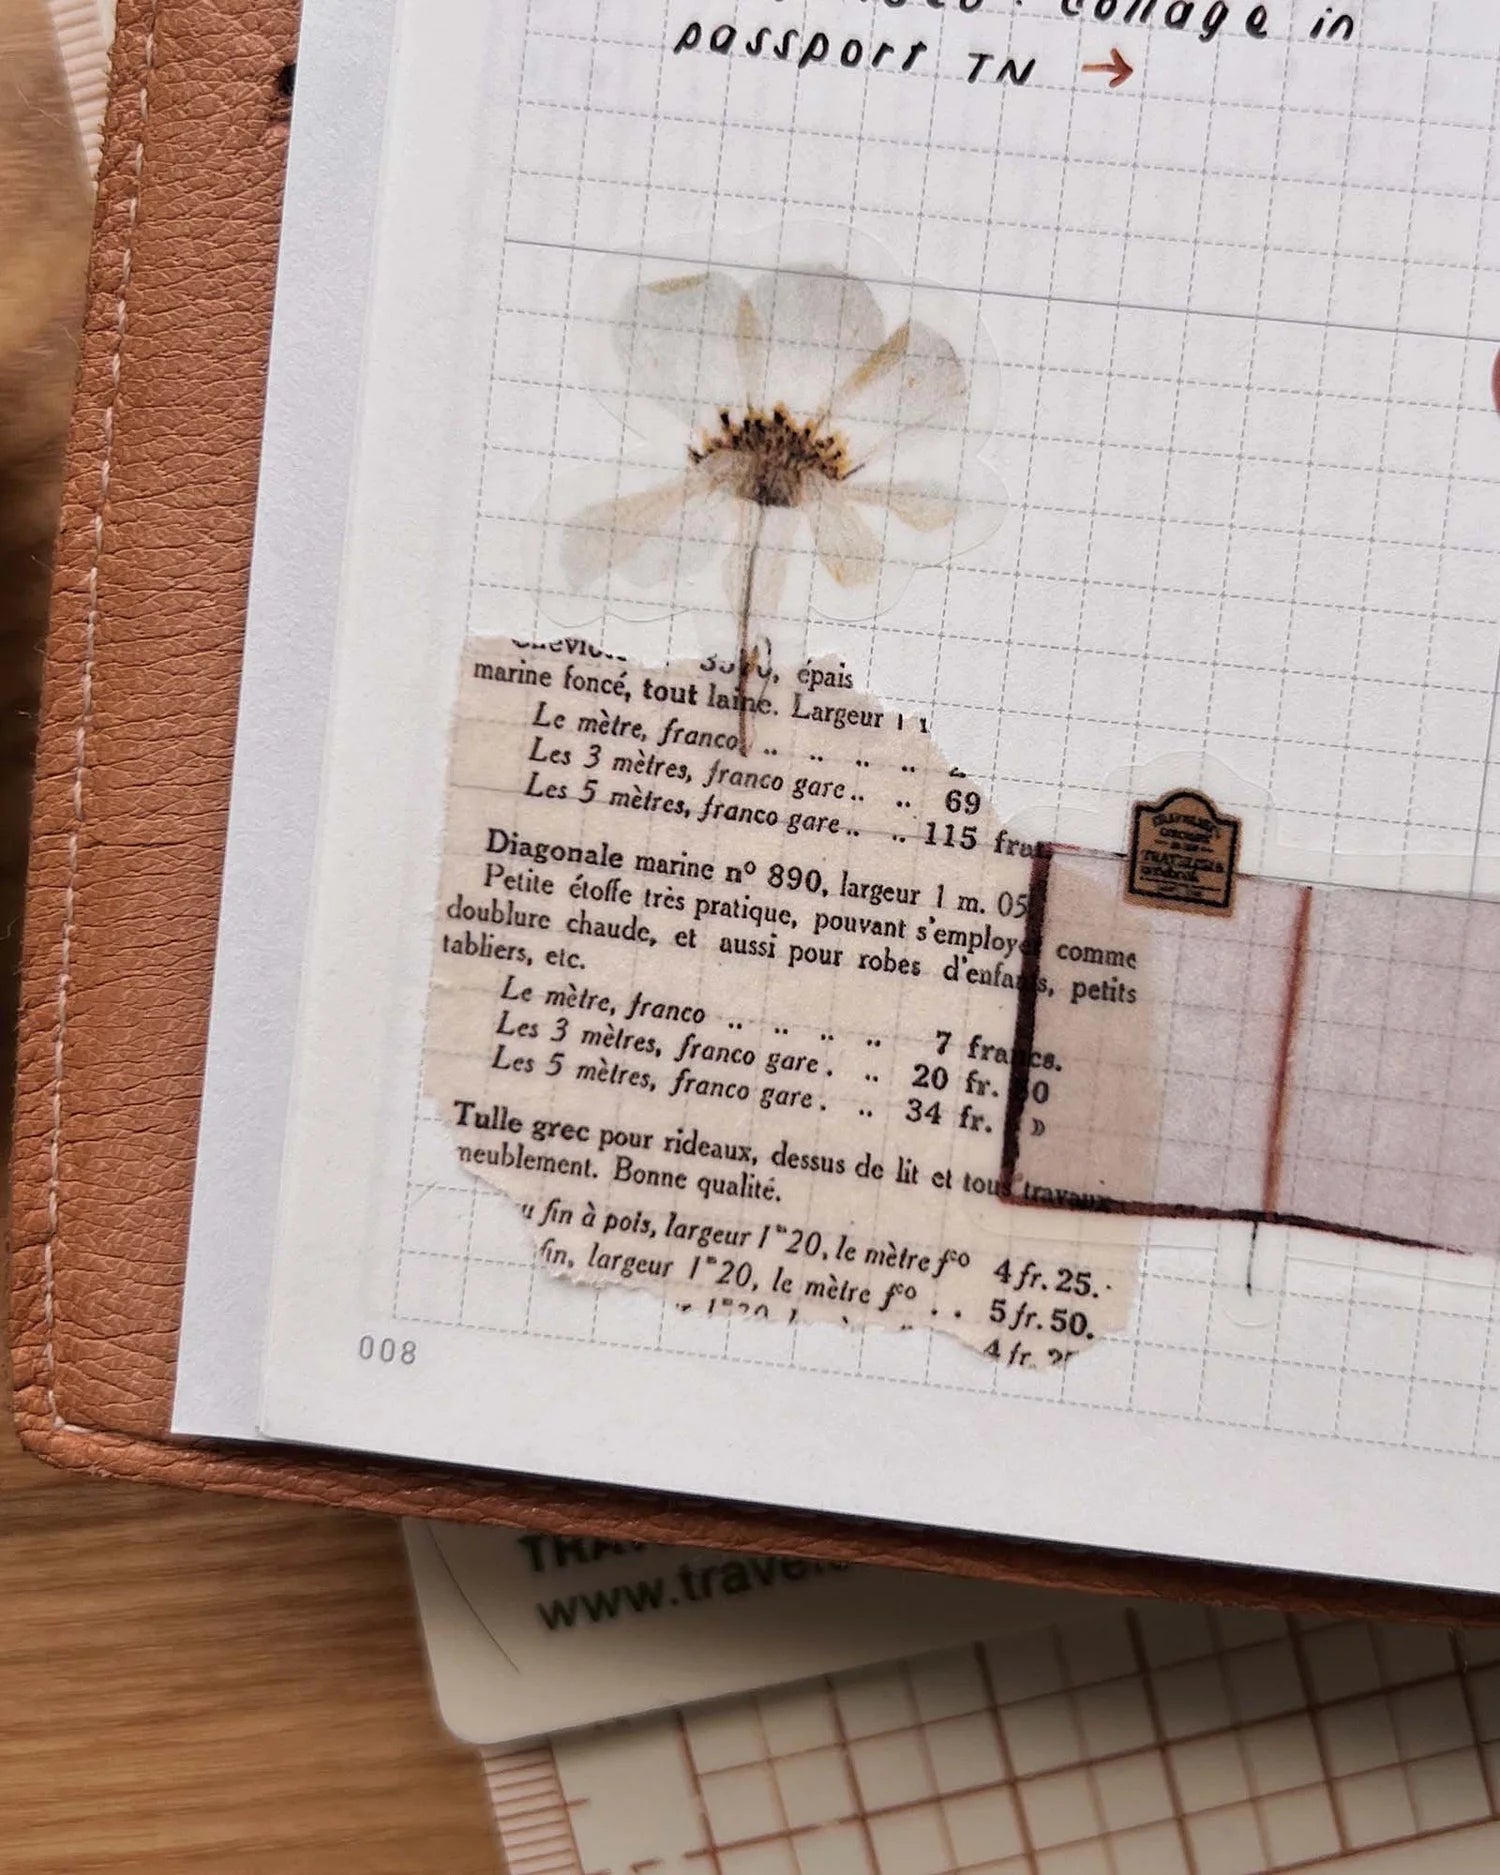 collage in
passport TN →
épais
marine foncé, tout laine. Largeur 1
Le mètre, franco .. .. .. ..
Les 3 mètres, franco gare .. .. 69
Les 5 mètres, franco gare .. .. 115 francs
Diagonale marine nº 890, largeur 1 m. 05
Petite étoffe très pratique, pouvant s'employer comme
doublure chaude, et aussi pour robes d'enfants, petits
tabliers, etc.
Le mètre, franco .. .. .. .. 7 francs.
Les 3 mètres, franco gare . .. 20 fr. 50
Les 5 mètres, franco gare . .. 34 fr. »
Tulle grec pour rideaux, dessus de lit et tous travaux
meublement. Bonne qualité.
fin à pois, largeur 1ᵐ20, le mètre fᶜᵒ 4 fr. 25.
fin, largeur 1ᵐ20, le mètre fᶜᵒ . . 5 fr. 50.
4 fr.
TRAVELER'S
COMPANY
TRAVELER'S
notebook
008
www.travel